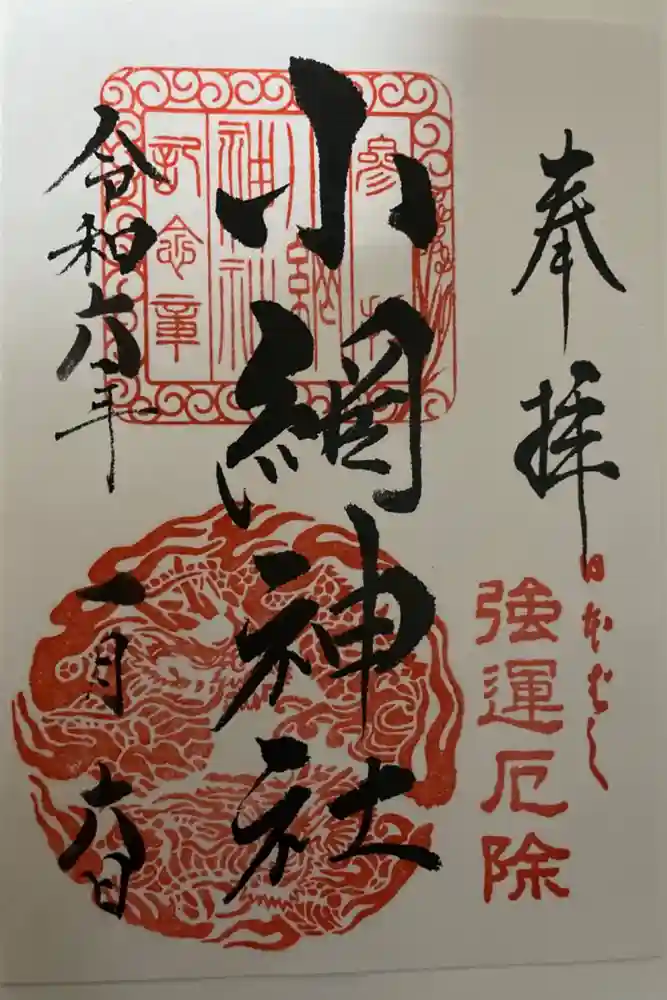 奉拝
日本ばし
強運厄除
参拝
小網神社
記念章
小網神社
令和六年
一月六日